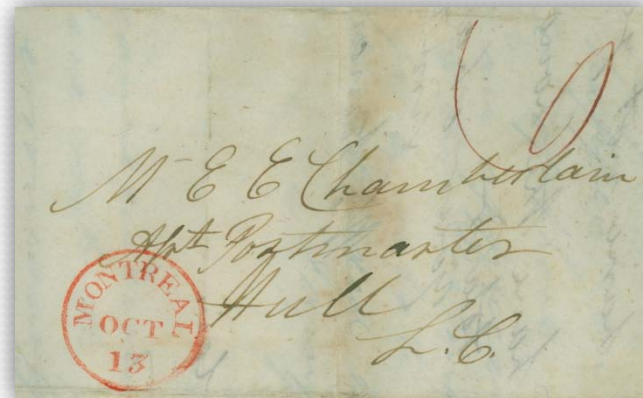 6
Mr E E Chamberlain
Asst Postmaster
Hull
L.C.
MONTREAL
OCT
13